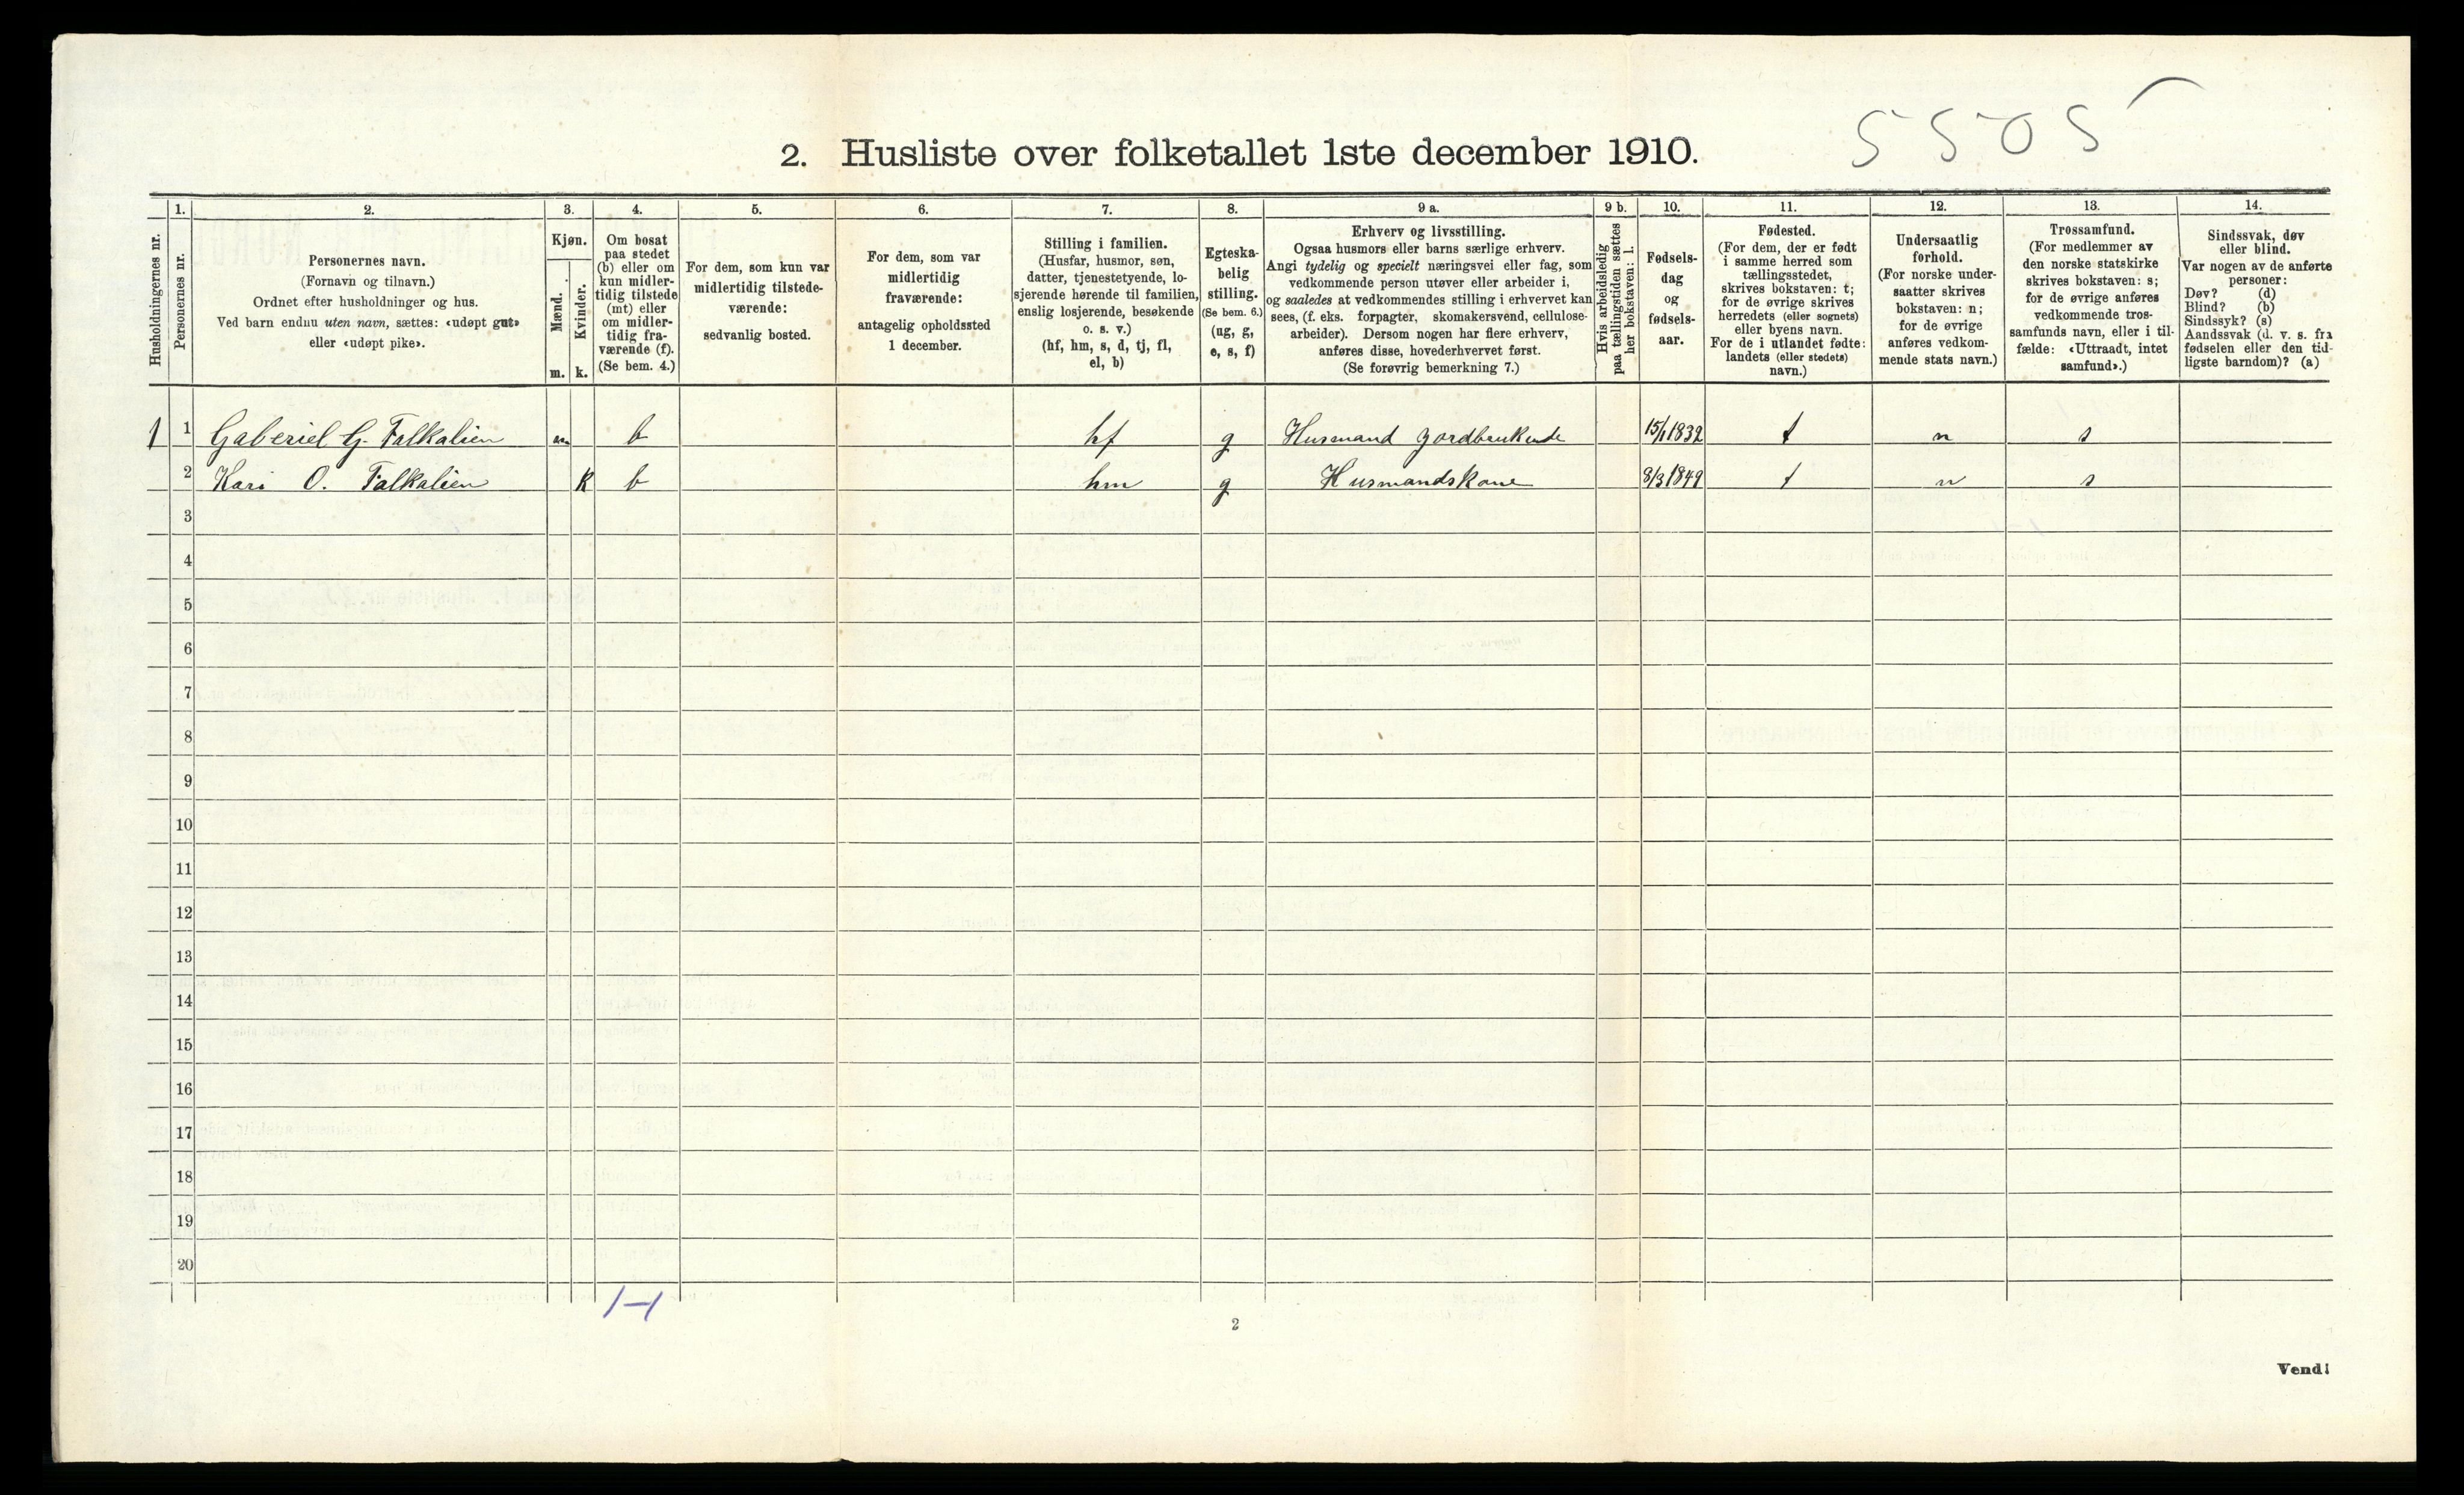 5505
2. Husliste over folketallet 1ste december 1910.
Husholdningernes nr.
1.
Personernes nr.
2.
Personernes navn.
(Fornavn og tilnavn.)
Ordnet efter husholdninger og hus.
Ved barn endnu uten navn, sættes: «udøpt gut»
eller «udøpt pike».
3.
Kjøn.
Mænd.
m.
Kvinder.
k.
4.
Om bosat
paa stedet
(b) eller om
kun midler-
tidig tilstede
(mt) eller
om midler-
tidig fra-
værende (f).
(Se bem. 4.)
5.
For dem, som kun var
midlertidig tilstede-
værende:
sedvanlig bosted.
6.
For dem, som var
midlertidig
fraværende:
antagelig opholdssted
1 december.
7.
Stilling i familien.
(Husfar, husmor, søn,
datter, tjenestetyende, lo-
sjerende hørende til familien,
enslig losjerende, besøkende
o. s. v.)
(hf, hm, s, d, tj, fl,
el, b)
8.
Egteska-
belig
stilling.
(Se bem. 6.)
(ug, g,
e, s, f)
9 a.
Erhverv og livsstilling.
Ogsaa husmors eller barns særlige erhverv.
Angi tydelig og specielt næringsvei eller fag, som
vedkommende person utøver eller arbeider i,
og saaledes at vedkommendes stilling i erhvervet kan
sees, (f. eks. forpagter, skomakersvend, cellulose-
arbeider). Dersom nogen har flere erhverv,
anføres disse, hovederhvervet først.
(Se forøvrig bemerkning 7.)
9 b.
Hvis arbeidsledig
paa tællingstiden sættes
her bokstaven: l.
10.
Fødsels-
dag
og
fødsels-
aar.
11.
Fødested.
(For dem, der er født
i samme herred som
tællingsstedet,
skrives bokstaven: t;
for de øvrige skrives
herredets (eller sognets)
eller byens navn.
For de i utlandet fødte:
landets (eller stedets)
navn.)
12.
Undersaatlig
forhold.
(For norske under-
saatter skrives
bokstaven: n;
for de øvrige
anføres vedkom-
mende stats navn.)
13.
Trossamfund.
(For medlemmer av
den norske statskirke
skrives bokstaven: s;
for de øvrige anføres
vedkommende tros-
samfunds navn, eller i til-
fælde: «Uttraadt, intet
samfund».)
14.
Sindssvak, døv
eller blind.
Var nogen av de anførte
personer:
Døv? (d)
Blind? (b)
Sindssyk? (s)
Aandssvak (d. v. s. fra
fødselen eller den tid-
ligste barndom)? (a)
1 1 Gaberiel G. Falkalien m b hf g Husmand jordbrukende 15/1 1832 t n s
2 Kari O. Falkalien k b hm g Husmandskone 8/3 1849 t n s
3
4
5
6
7
8
9
10
11
12
13
14
15
16
17
18
19
20
1-1
2
Vend!